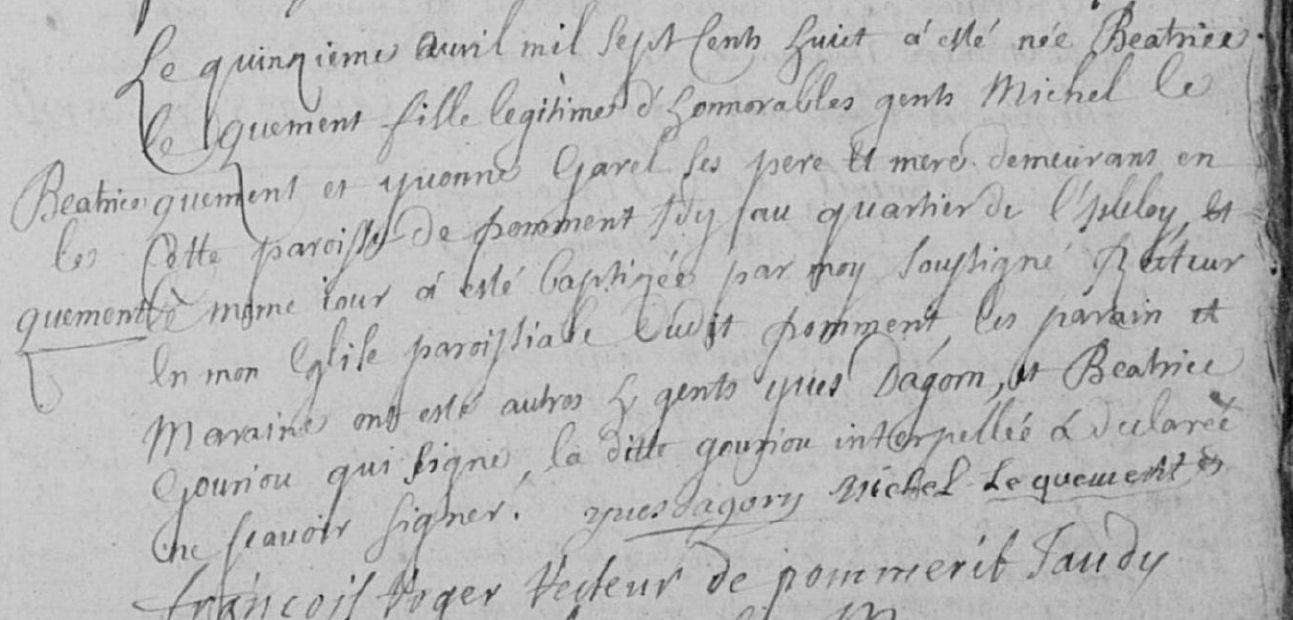 Le quinzieme auvril mil sept Cents huict á esté née Beatrice
le quement fille legitime d'honnorables gents Michel le
quement et yvonne Garel ses pere et mere demeurants en
Cette paroisse de pomment Jdy au quartier de et
Le même iour á esté baptizée par moy soussigné Recteur
En mon Eglise paroissiale dudit pomment, les parain et
Maraine ont esté autres h gents yves Dagorn, et Beatrice
Gouriou qui signe, la ditte gouriou interpellée a declarée
ne scavoir signer. yves dagorn Michel Le quement
françois Roger Recteur de pommerit Jaudy
Beatrice
le
quement